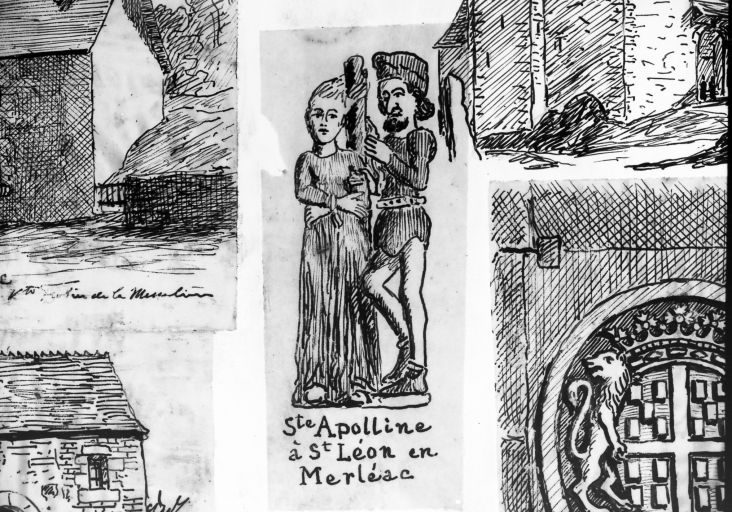 de la
Ste Apolline
à St Léon en
Merléac